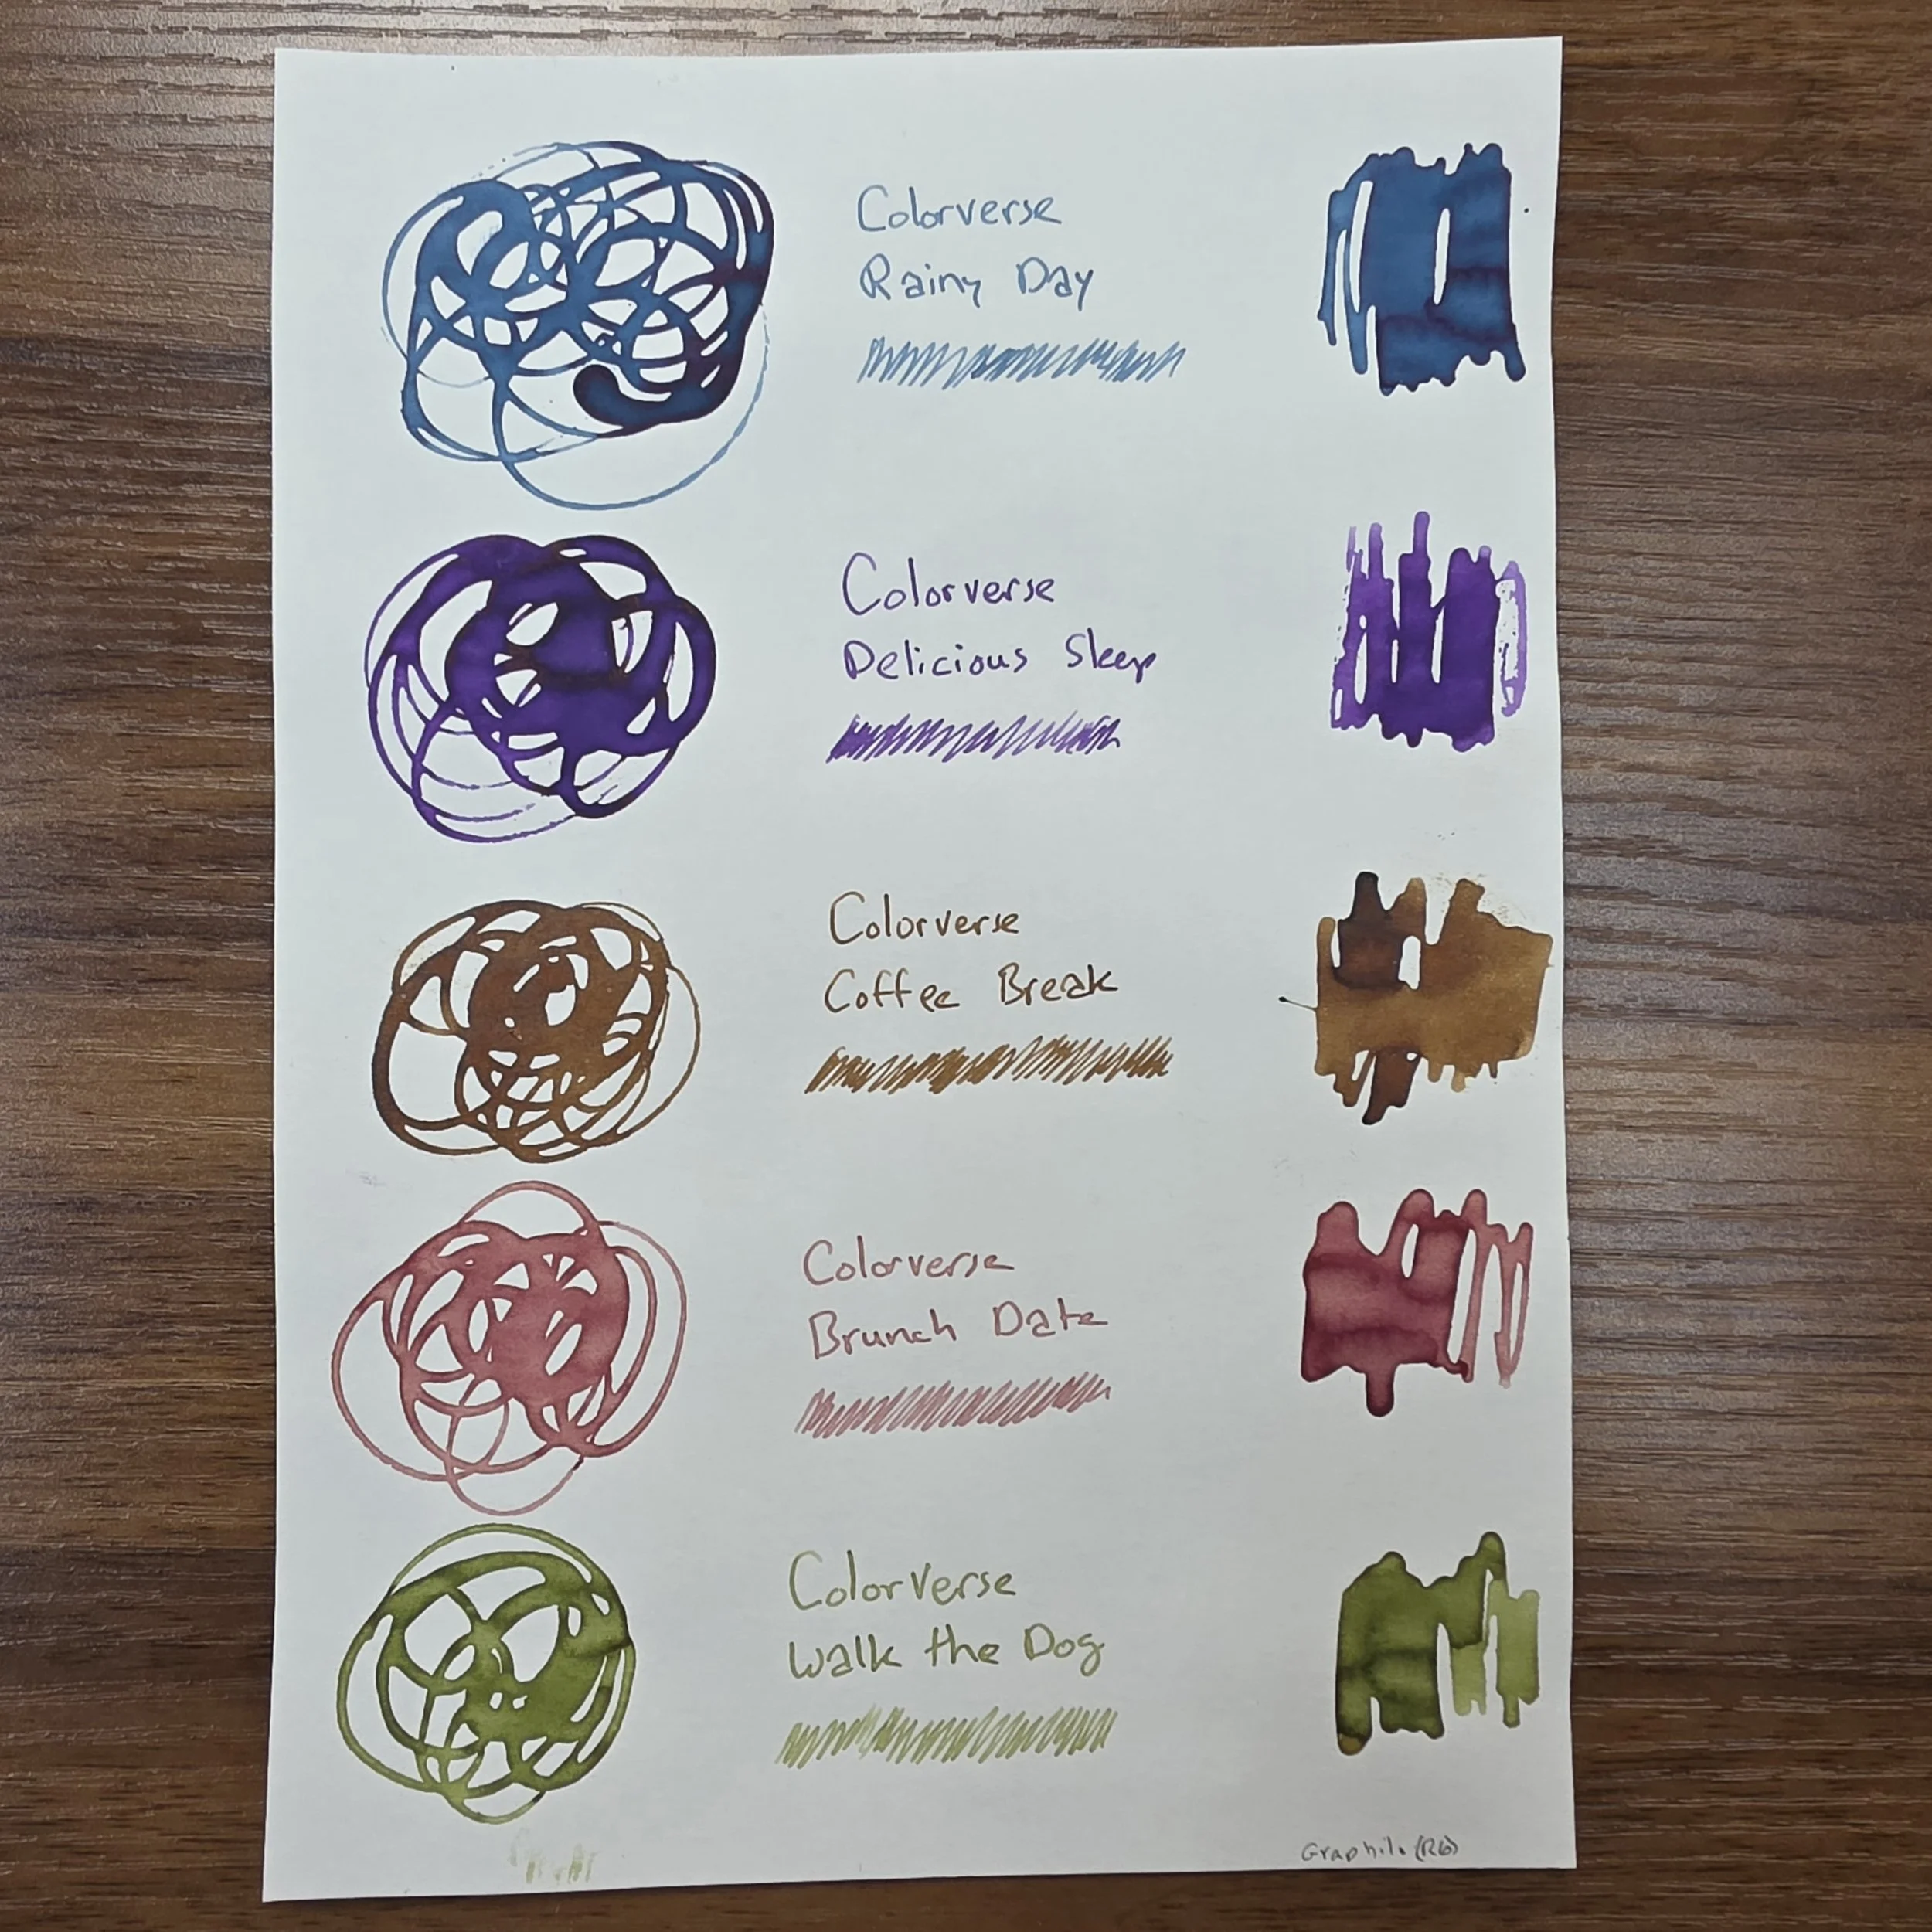 Colorverse
Rainy Day
Colorverse
Delicious Sleep
Colorverse
Coffee Break
Colorverse
Brunch Date
Colorverse
Walk the Dog
Graphilo (R6)